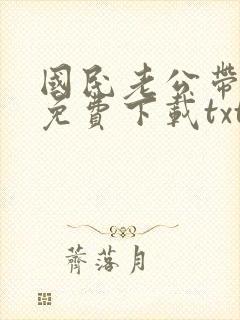 國民老公帶
免費下載txt
薺落月